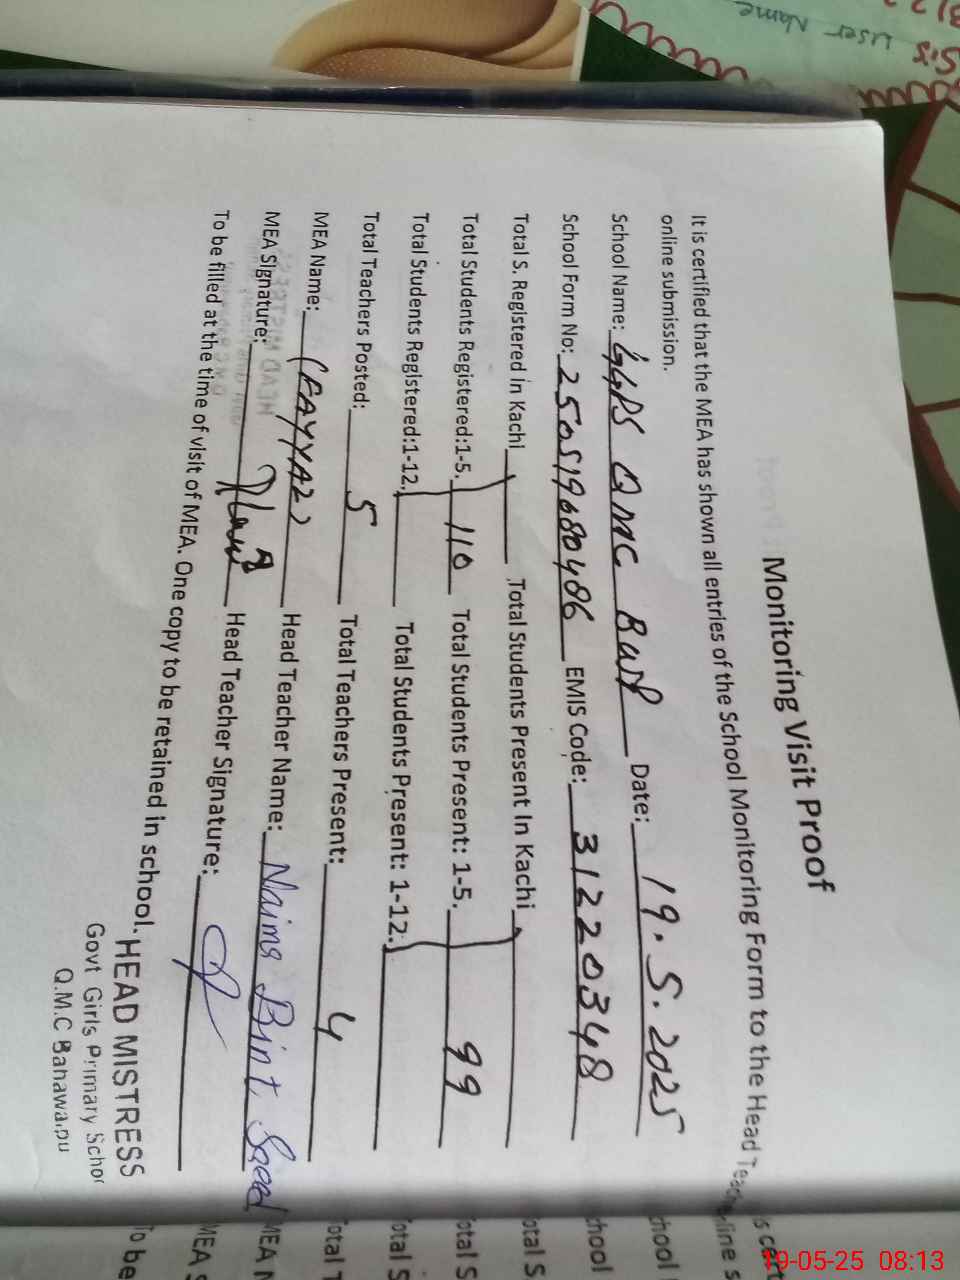 Monitoring Visit Proof
It is certified that the MEA has shown all entries of the School Monitoring Form to the Head Teacher
online submission.
School Name: GGPS QMC Bwp Date: 19.5.2025
School Form No: 250519680486 EMIS Code: 31220348
Total S. Registered in Kachi Total Students Present In Kachi
Total Students Registered:1-5. 110 Total Students Present: 1-5. 99
Total Students Registered:1-12. Total Students Present: 1-12.
Total Teachers Posted: 5 Total Teachers Present: 4
MEA Name: (FAYYAZ) Head Teacher Name: Naima Bint Saeed
MEA Signature: Head Teacher Signature:
To be filled at the time of visit of MEA. One copy to be retained in school.
HEAD MISTRESS
Govt Girls Primary Schoo
Q.M.C Bahawalpu
User Name
19-05-25 08:13